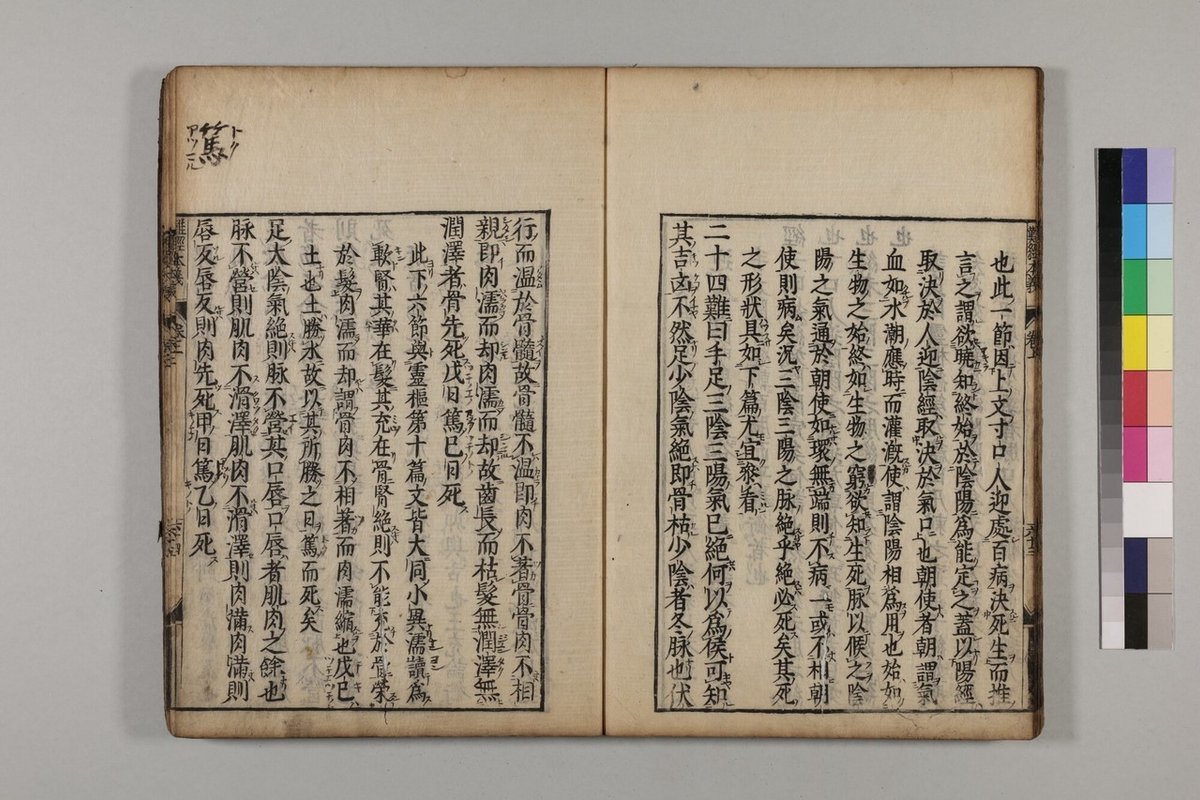 也此一節因上文寸口人迎處百病決死生而推
言之謂欲曉知終始於陰陽為能定之蓋以陽經
取決於人迎陰經取決於氣口也朝使者朝謂氣
血如水潮應時而灌漑使謂陰陽相為用也始如
生物之始終如生物之窮欲知生死脉以候之陰
陽之氣通於朝使如環無端則不病一或不相朝
使則病矣況三陰三陽之脉絶乎絶必死矣其死
之形狀具如下篇尤宜叅看
二十四難曰手足三陰三陽氣已絶何以為候可知
其吉凶不然足少陰氣絶即骨枯少陰者冬脉也伏
行而温於骨髓故骨髓不温即肉不著骨骨肉不相
親即肉濡而却肉濡而却故齒長而枯髮無潤澤無
潤澤者骨先死戊日篤己日死
此下六節與靈樞第十篇文皆大同小異濡讀為
軟腎其華在髮其充在骨腎絶則不能充於骨榮
於髮肉濡而却謂骨肉不相著而肉濡縮也戊己
土也土勝水故以其所勝之日篤而死矣
足大陰氣絶則脉不營其口唇口唇者肌肉之餘也
脉不營則肌肉不滑澤肌肉不滑澤則肉滿肉滿則
唇反唇反則肉先死甲日篤乙日死
篤
トク
アツシ